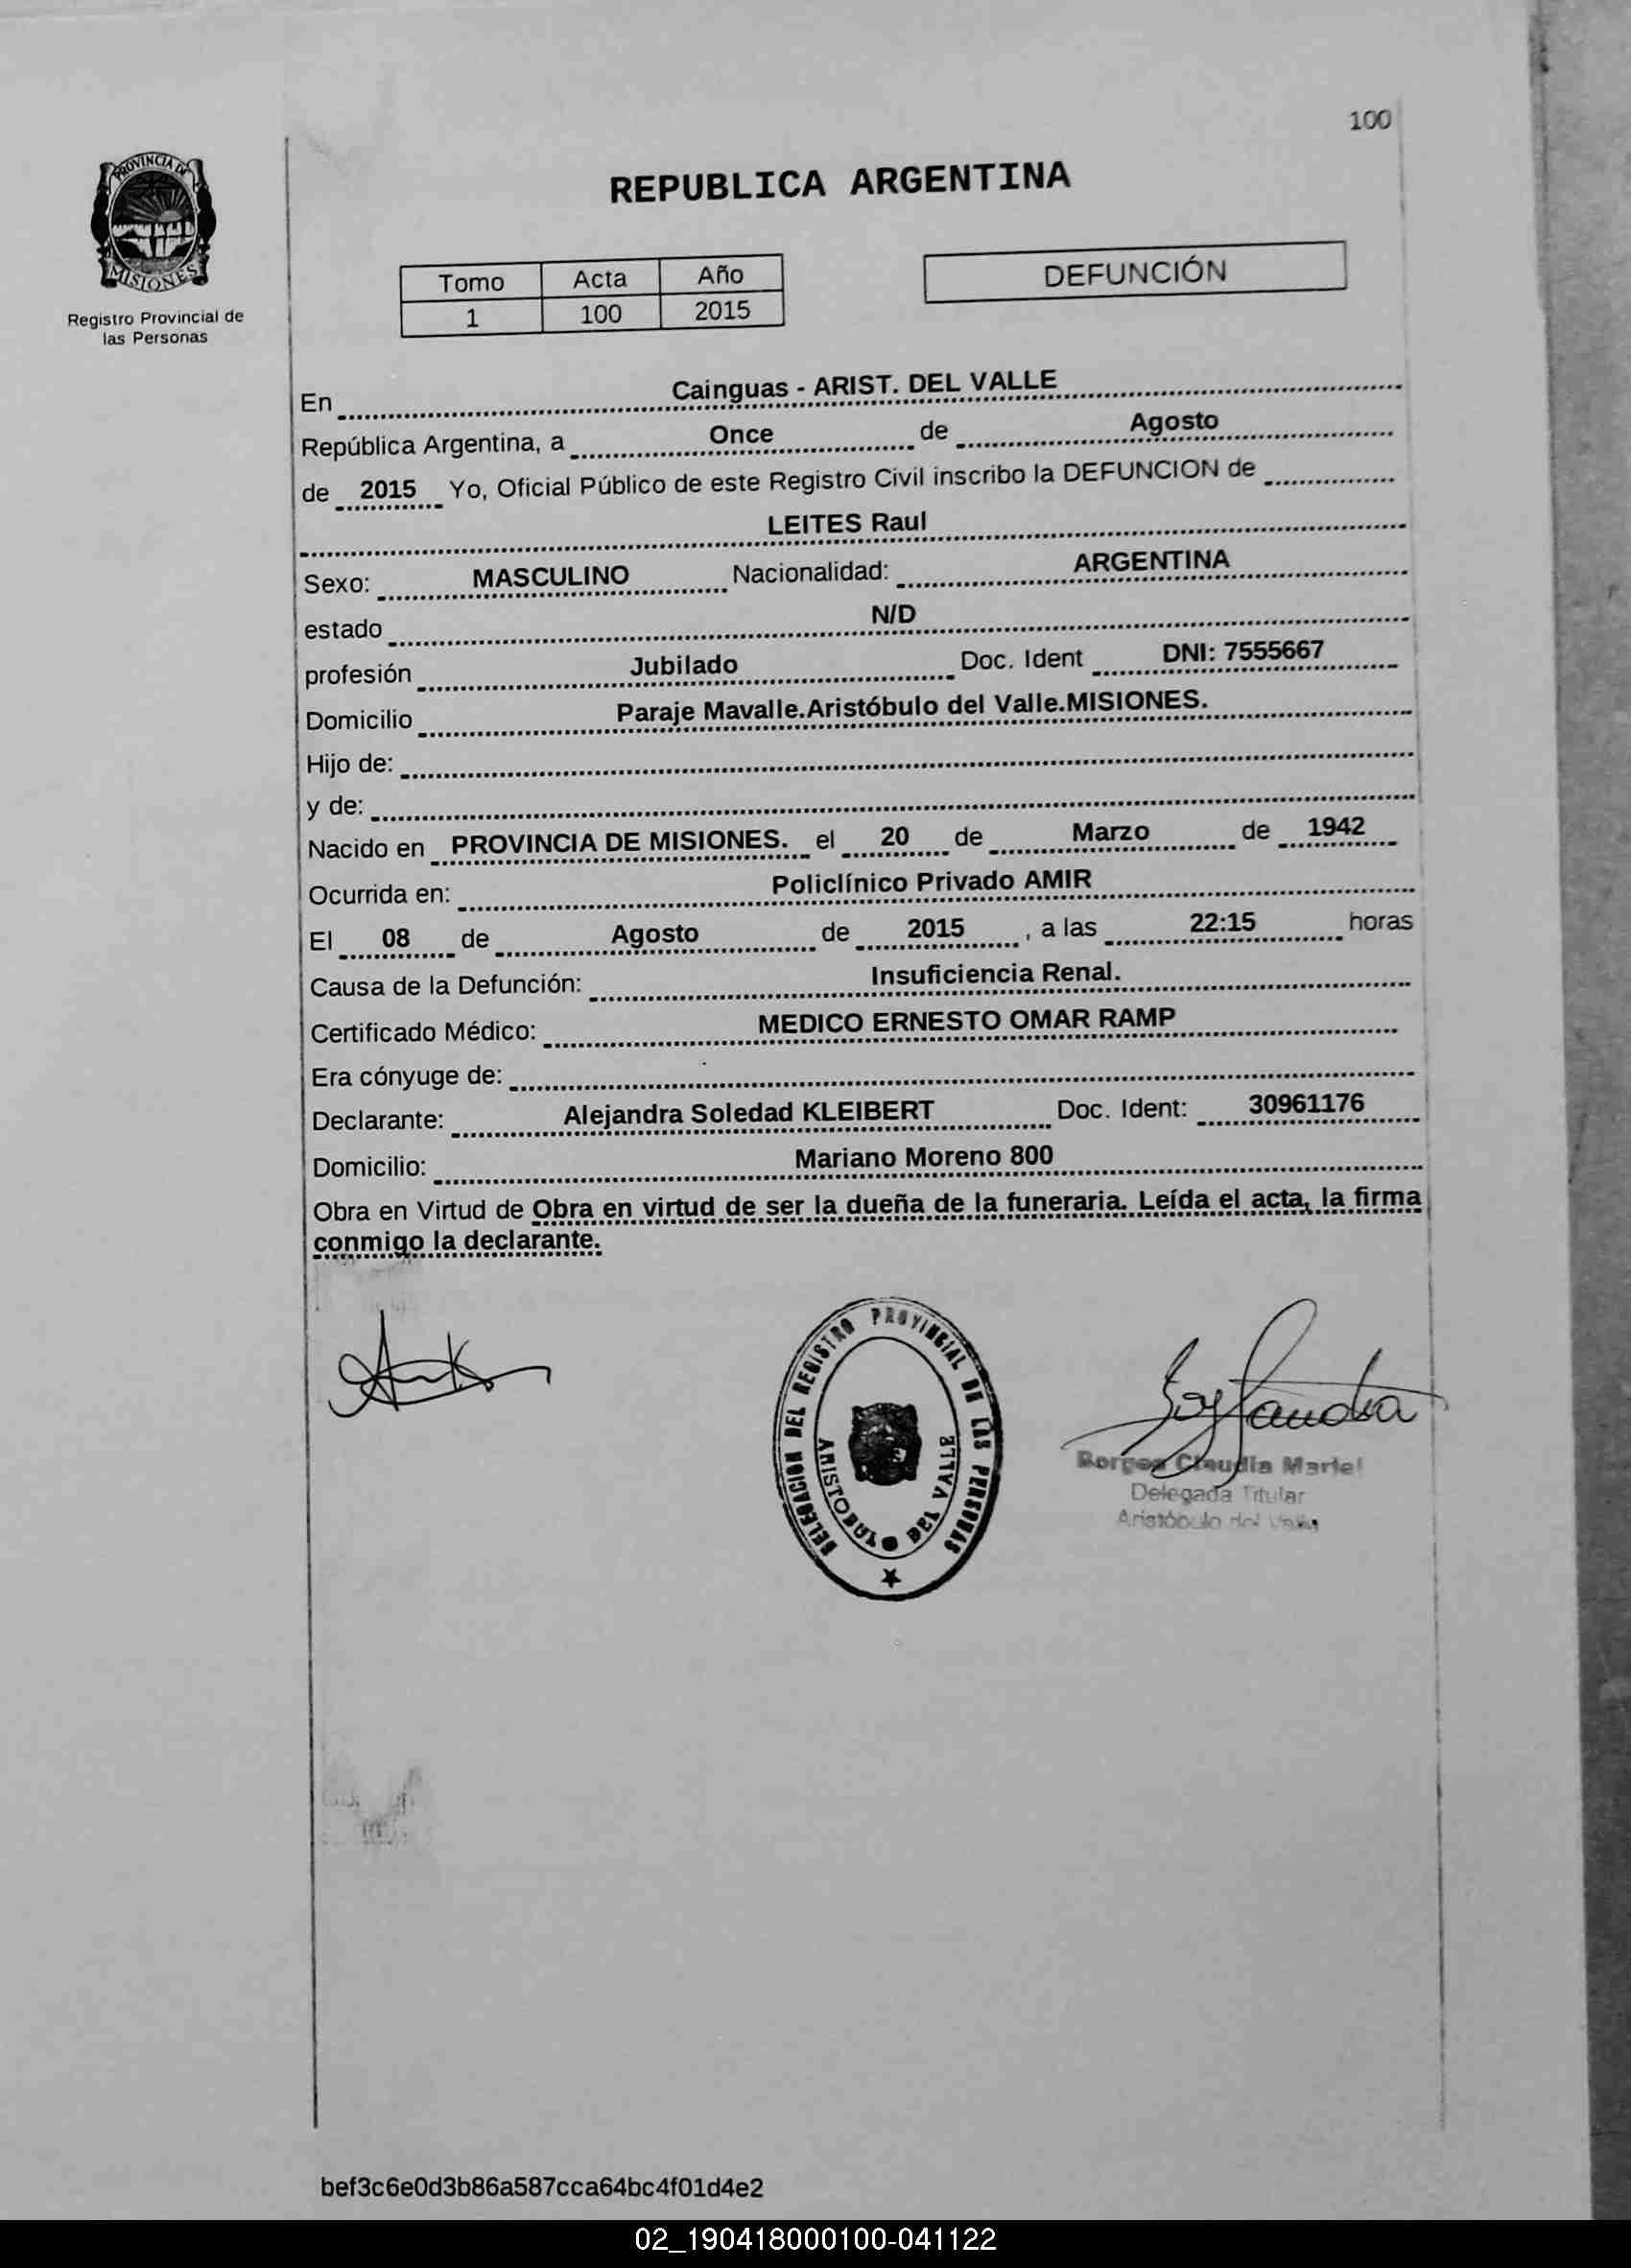 100
PROVINCIA DE
MISIONES
Registro Provincial de
las Personas
REPUBLICA ARGENTINA
Tomo Acta Año
1 100 2015
DEFUNCIÓN
En Cainguas - ARIST. DEL VALLE
República Argentina, a Once de Agosto
de 2015 Yo, Oficial Público de este Registro Civil inscribo la DEFUNCION de
LEITES Raul
Sexo: MASCULINO Nacionalidad: ARGENTINA
estado N/D
profesión Jubilado Doc. Ident DNI: 7555667
Domicilio Paraje Mavalle.Aristóbulo del Valle.MISIONES.
Hijo de:
y de:
Nacido en PROVINCIA DE MISIONES. el 20 de Marzo de 1942
Ocurrida en: Policlínico Privado AMIR
El 08 de Agosto de 2015 , a las 22:15 horas
Causa de la Defunción: Insuficiencia Renal.
Certificado Médico: MEDICO ERNESTO OMAR RAMP
Era cónyuge de:
Declarante: Alejandra Soledad KLEIBERT Doc. Ident: 30961176
Domicilio: Mariano Moreno 800
Obra en Virtud de Obra en virtud de ser la dueña de la funeraria. Leída el acta, la firma
conmigo la declarante.
DELEGACION DEL REGISTRO PROVINCIAL DE LAS PERSONAS
ARISTOBULO DEL VALLE
Borges Claudia Mariel
Delegada Titular
Aristóbulo del Valle
bef3c6e0d3b86a587cca64bc4f01d4e2
02_190418000100-041122